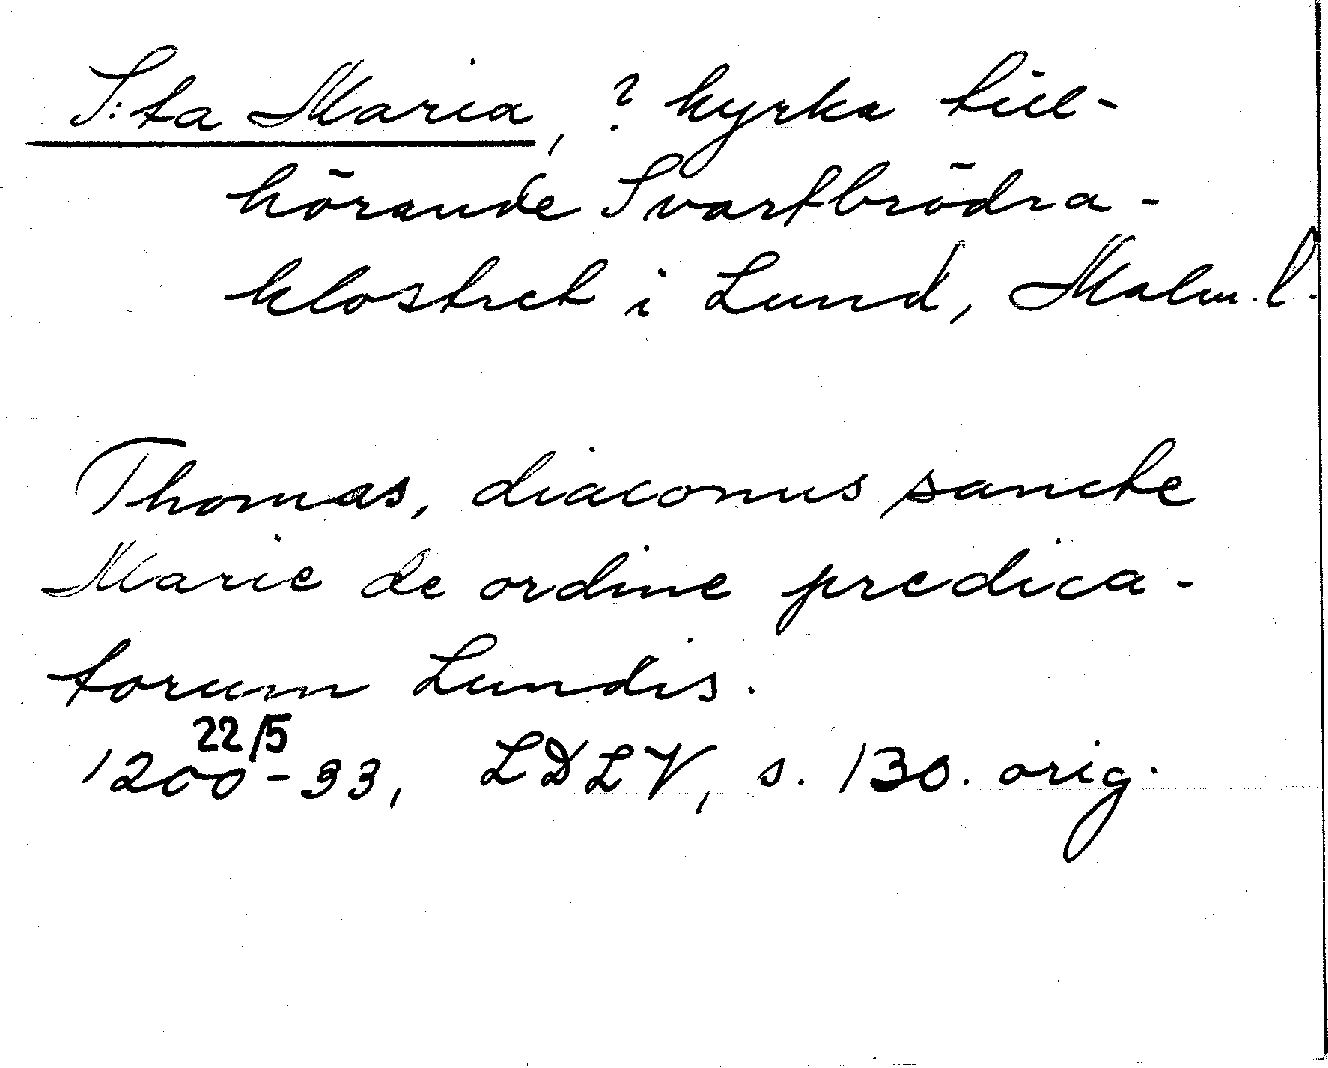 S:ta Maria, ? kyrka till-
hörande Svartbrödra-
klostret i Lund, Malm. l.
Thomas, diaconus sancte
Marie de ordine predica-
torum Lundis.
22/5
1200-33, LDLV, s. 130. orig.